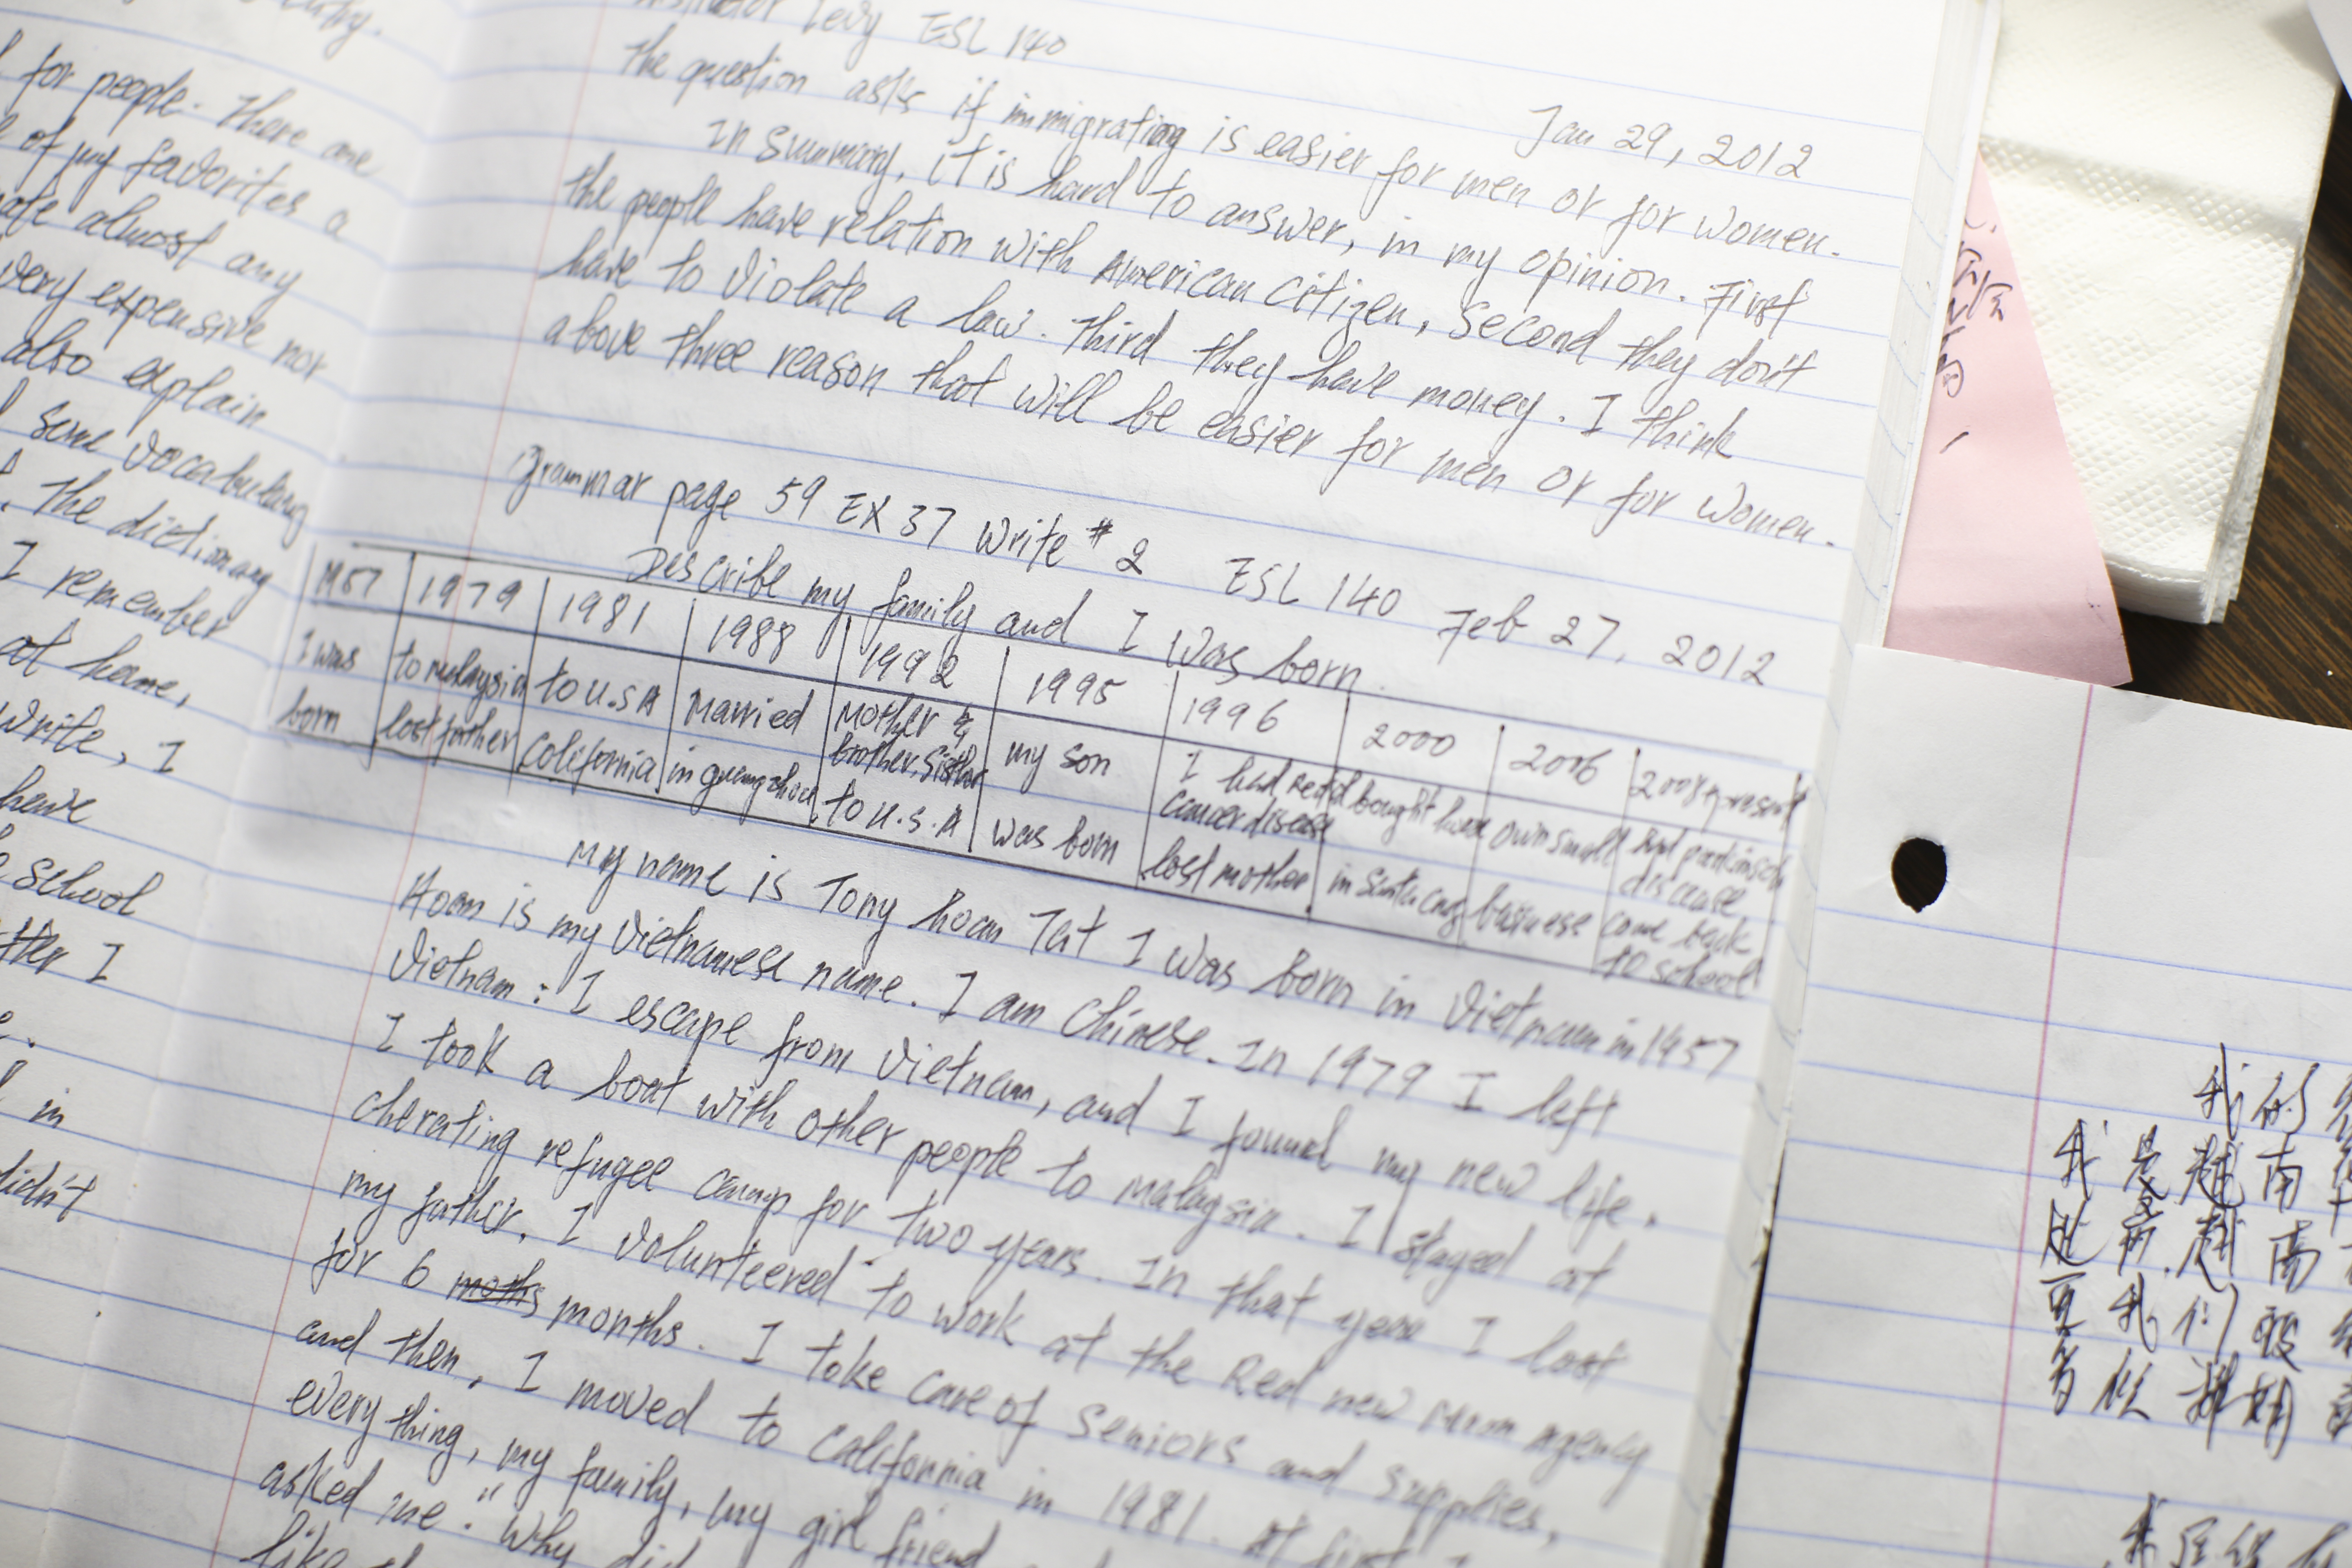 for people. There are
of my favorites a
almost any
very expensive nor
also explain
some vocabulary
The dictionary
I remember
at home,
write, I
have
school
I
in
didn't
Levy ESL 140
Jan 29, 2012
The question asks if immigrating is easier for men or for women.
In Summary, it is hard to answer, in my opinion. First
the people have relation with American citizen, Second they don't
have to violate a law. Third they have money. I think
above three reason that will be easier for men or for women.
Grammar page 59 EX 37 write #2 ESL 140 Feb 27, 2012
Describe my family and I was born.
1979 1981 1988 1992 1995 1996 2000 2006 2008 present
I was born
to malaysia lost father
to U.S A California
Married in guangzhou
Mother & brother, sister to U.S.A
my son was born
I had cancer disease lost mother
bought house in
own small business
had parkinson disease come back to school
My name is Tony hoan Tat I was born in Vietnam in 1957
Hoan is my Vietnamese name. I am Chinese. In 1979 I left
Vietnam: I escape from Vietnam, and I found my new life.
I took a boat with other people to Malaysia. I stayed at
cherating refugee camp for two years. In that year I lost
my father. I volunteered to work at the Red new Moon Agency
for 6 months. I take care of Seniors and supplies,
and then, I moved to California in 1981. At first I
everything, my family, my girl friend
asked me: "Why did
like
我的
我是越南
南
我们被